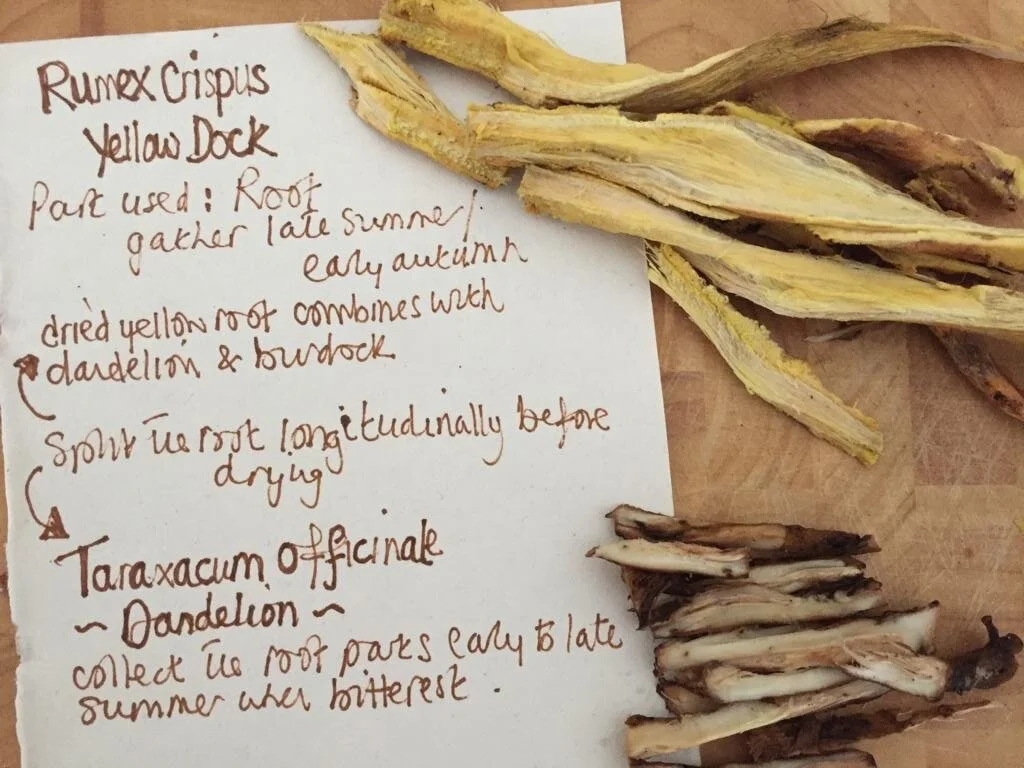 Rumex Crispus
Yellow Dock
Part used: Root
gather late summer/
early autumn
dried yellow root combines with
dandelion & burdock
Split the root longitudinally before
drying
Taraxacum Officinale
~ Dandelion ~
collect the root parts early to late
summer when bitterest.